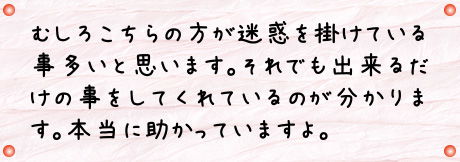 むしろこちらの方が迷惑を掛けている
事多いと思います。それでも出来るだ
けの事をしてくれているのが分かりま
す。本当に助かっていますよ。